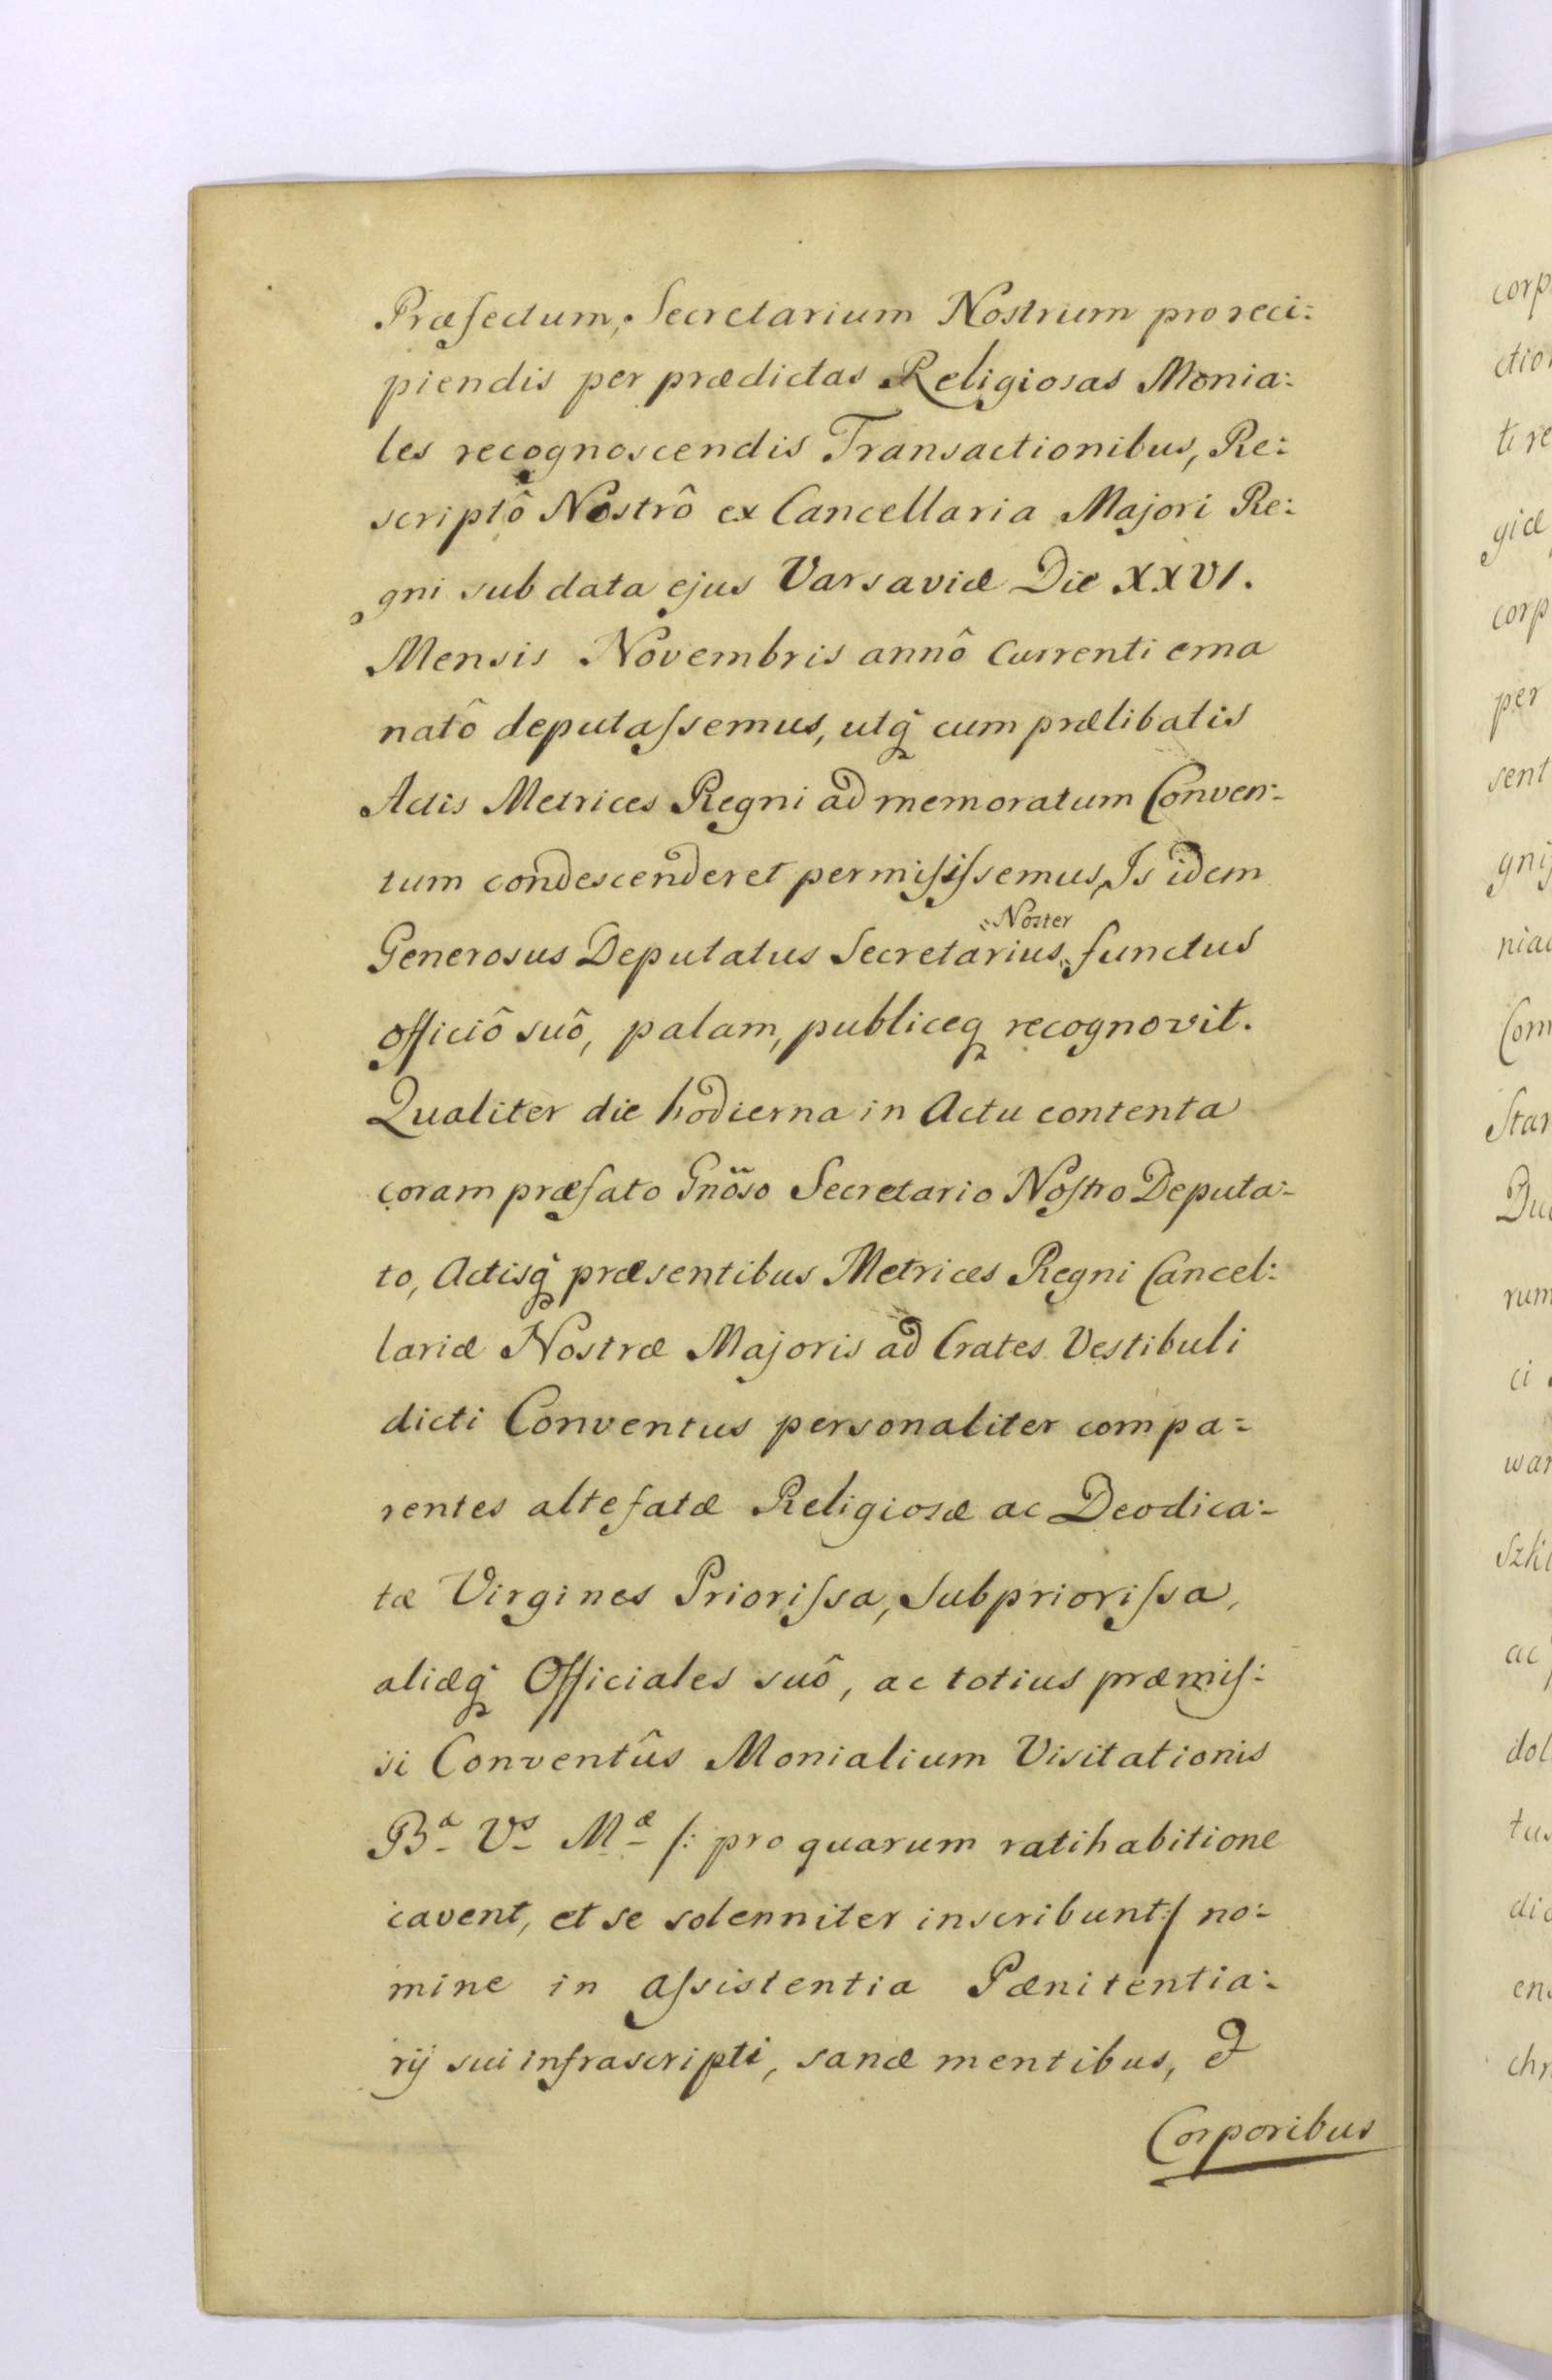 Præfectum, Secretarium Nostrum pro reci:
piendis per prædictas Religiosas Monia:
les recognoscendis Transactionibus, Re:
scriptô Nostrô ex Cancellaria Majori Re:
gni sub data ejus Varsaviæ Die XXVI.
Mensis Novembris annô Currenti ema
natô deputaſsemus, utq̃ cum prælibatis
Actis Metrices Regni ad memoratum Conven:
tum condescenderet permiſiſsemus, Is idem
Generosus Deputatus Secretarius Noster functus
officiô suô, palam, publiceq recognovit.
Qualiter die hodierna in Actu contenta
coram præfato Gnõso Secretario Noſtro Deputa:
to, Actisq̃ præsentibus Metrices Regni Cancel:
lariæ Nostræ Majoris ad Crates Vestibuli
dicti Conventus personaliter compa:
rentes altefatæ Religiosæ ac Deodica:
tæ Virgines Prioriſsa, Subprioriſsa,
aliæq̃ Officiales suô, ac totius præmiſ:
si Conventûs Monialium Visitationis
Bᵃ Vˢ Mᵃᵉ /: pro quarum ratihabitione
cavent, et se solenniter inscribunt :/ no:
mine in aſsistentia Pænitentia:
rij sui infrascripti, sanæ mentibus, &
Corporibus
corp
ctio
ti re
giæ
corp
per
sent
gni
nia
Com
Star
Du
rum
ci
war
Szk
ac
dol
tu
di
en
chr